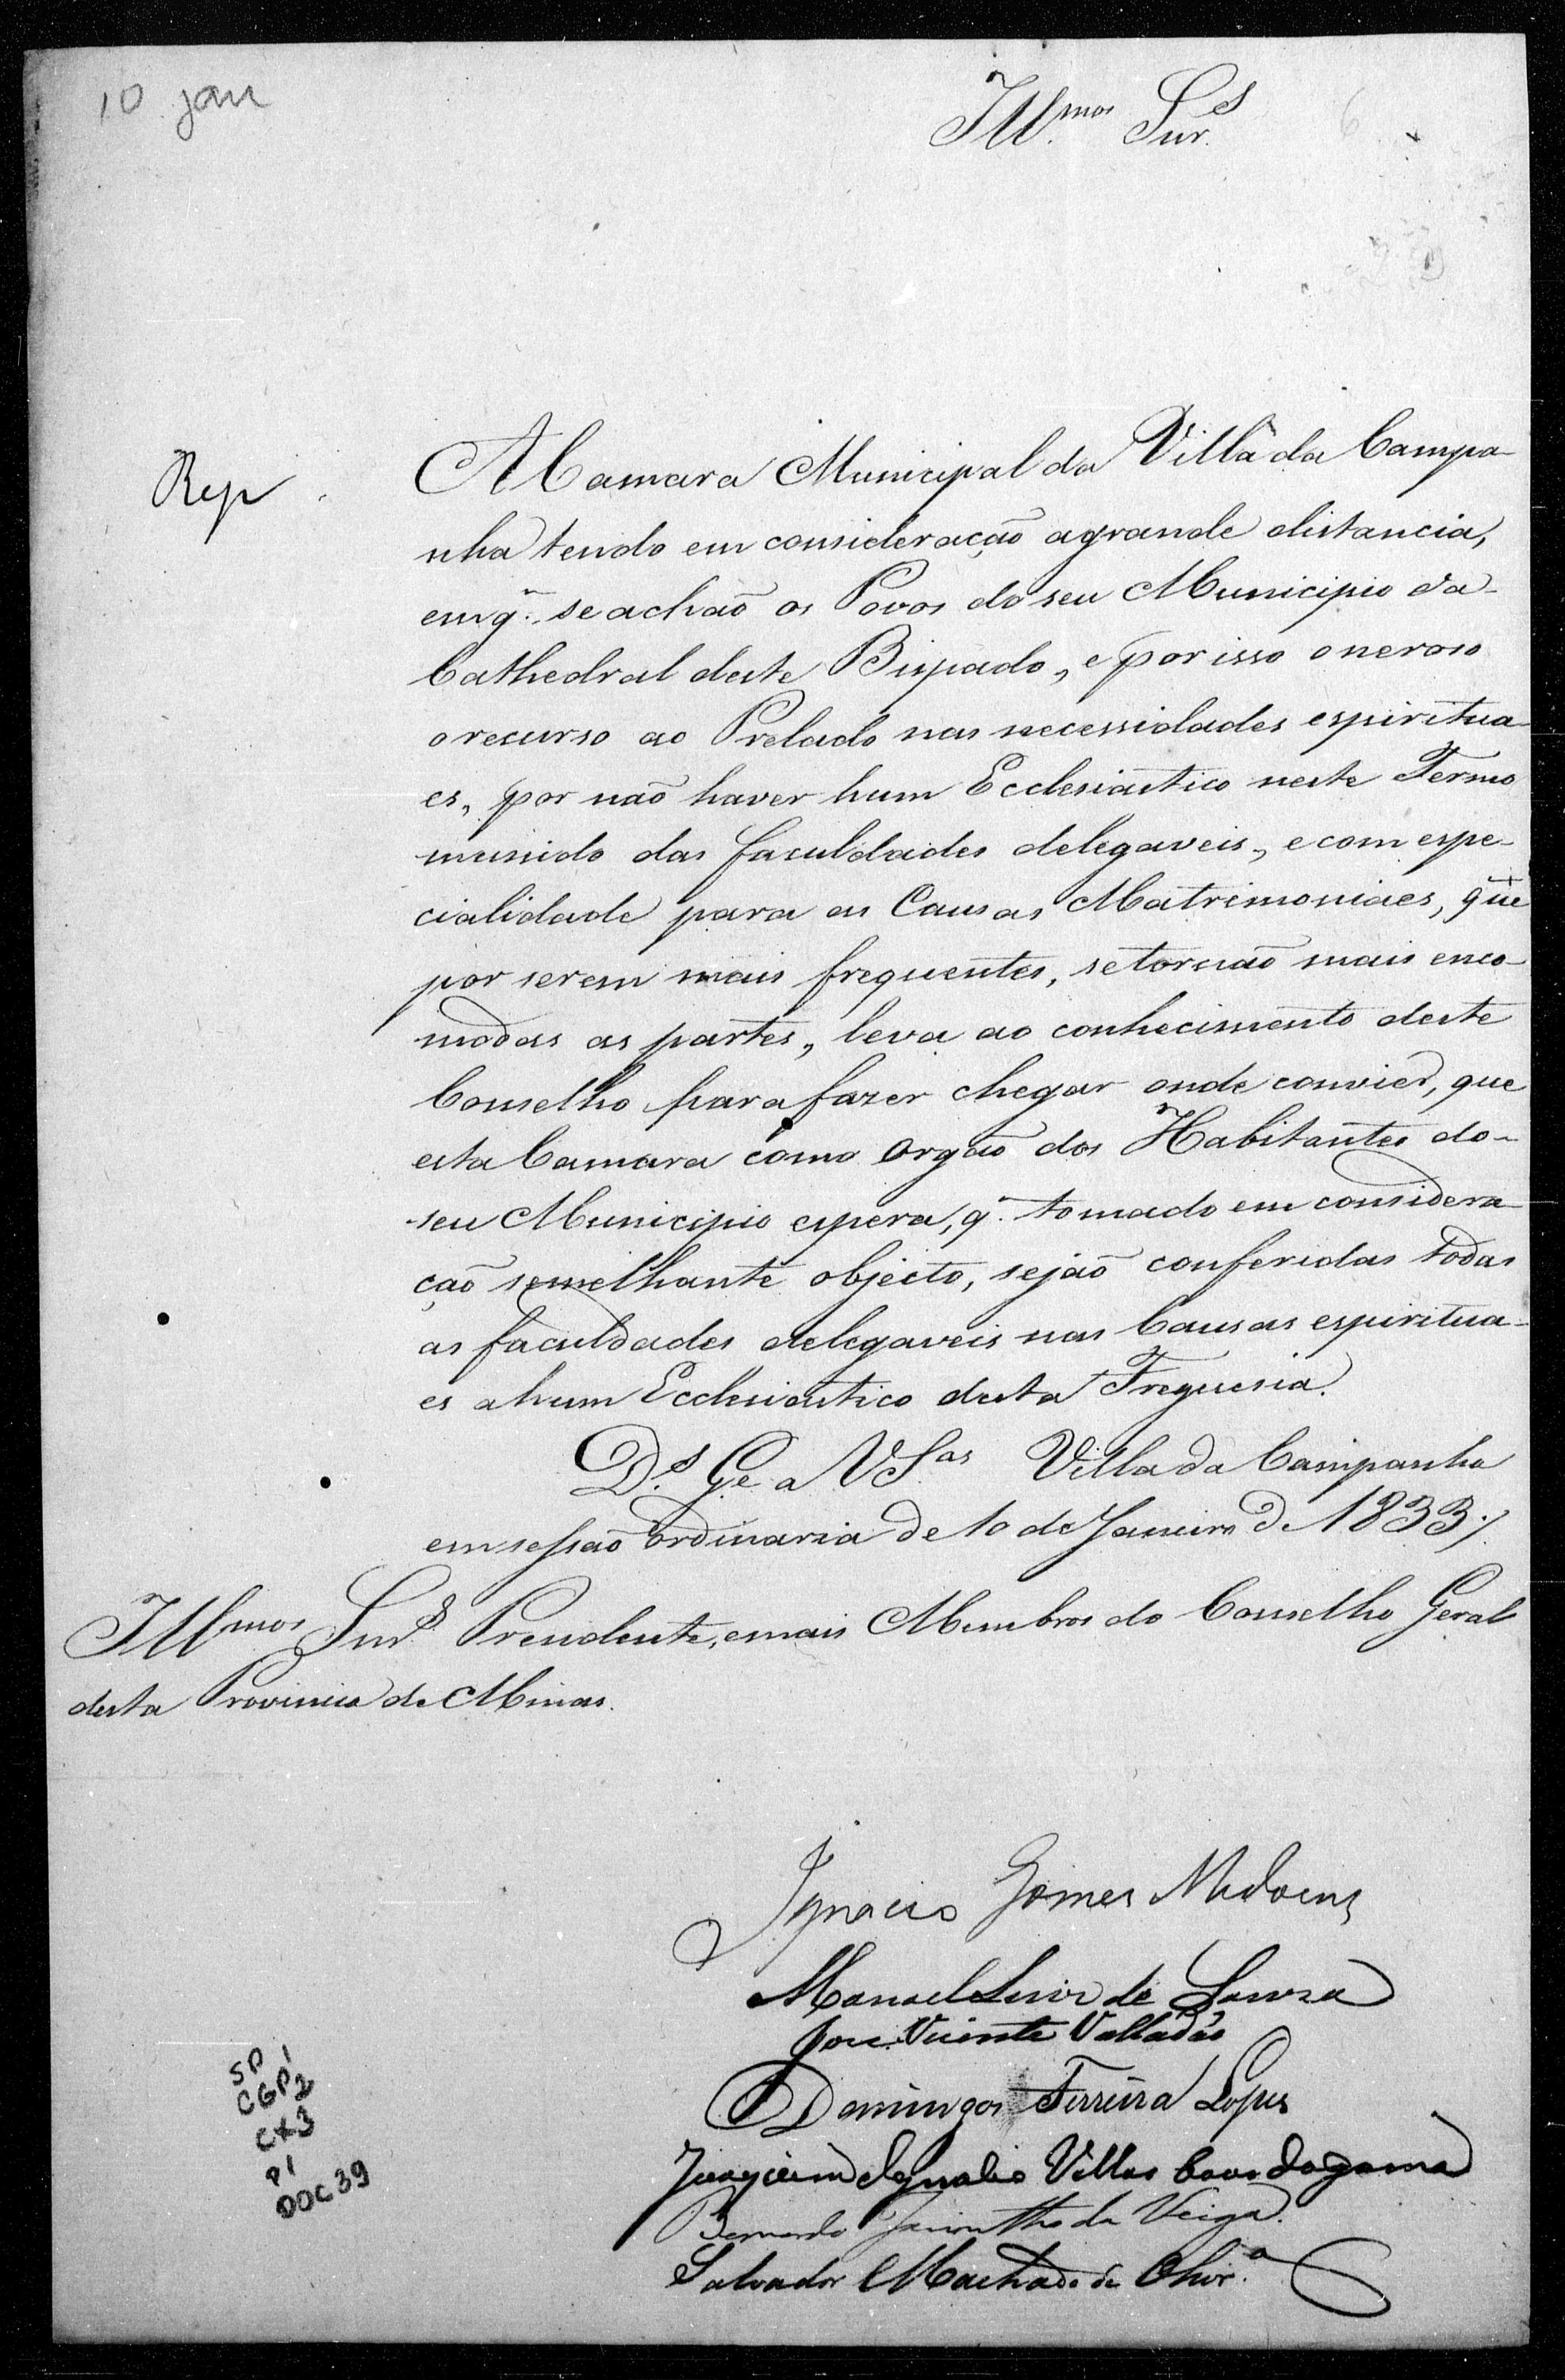 10 jan
Ill.mos Snr.s
6
Rep
A Camara Municipal da Villa da Campa-
nha tendo em consideração a grande distancia,
em q. se achão os Povos do seu Municipio da
Cathedral deste Bispado, e por isso oneroso
o recurso ao Prelado nas necessidades espiritua-
es, por não haver hum Ecclesiastico neste Termo
munido das faculdades delegaveis, e com espe-
cialidade para as Causas Matrimoniaes, que
por serem mais frequentes, se tornão mais enco-
modas as partes, leva ao conhecimento deste
Conselho para fazer chegar onde convier, que
esta Camara como orgão dos Habitantes do
seu Municipio espera, q. tomado em considera-
ção semelhante objecto, sejão conferidas todas
as faculdades delegaveis nas Causas espiritua-
es a hum Ecclesiastico desta Freguesia.
D.s G.e a VS.as Villa da Campanha
em sessão ordinaria de 10 de Janeiro de 1833./
Ill.mos Snr.s Presidente, e mais Membros do Conselho Geral
desta Provincia de Minas.
Ignacio Gomes Midoens
Manoel Luiz de Souza
Jose Vicente Valladão
Domingos Ferreira Lopes
Joaquim Ignacio Villas boas da gama
Bernardo Jacintho da Veiga.
Salvador Machado de Olivr.a
SP 1
CGP2
CX3
P1
DOC 39